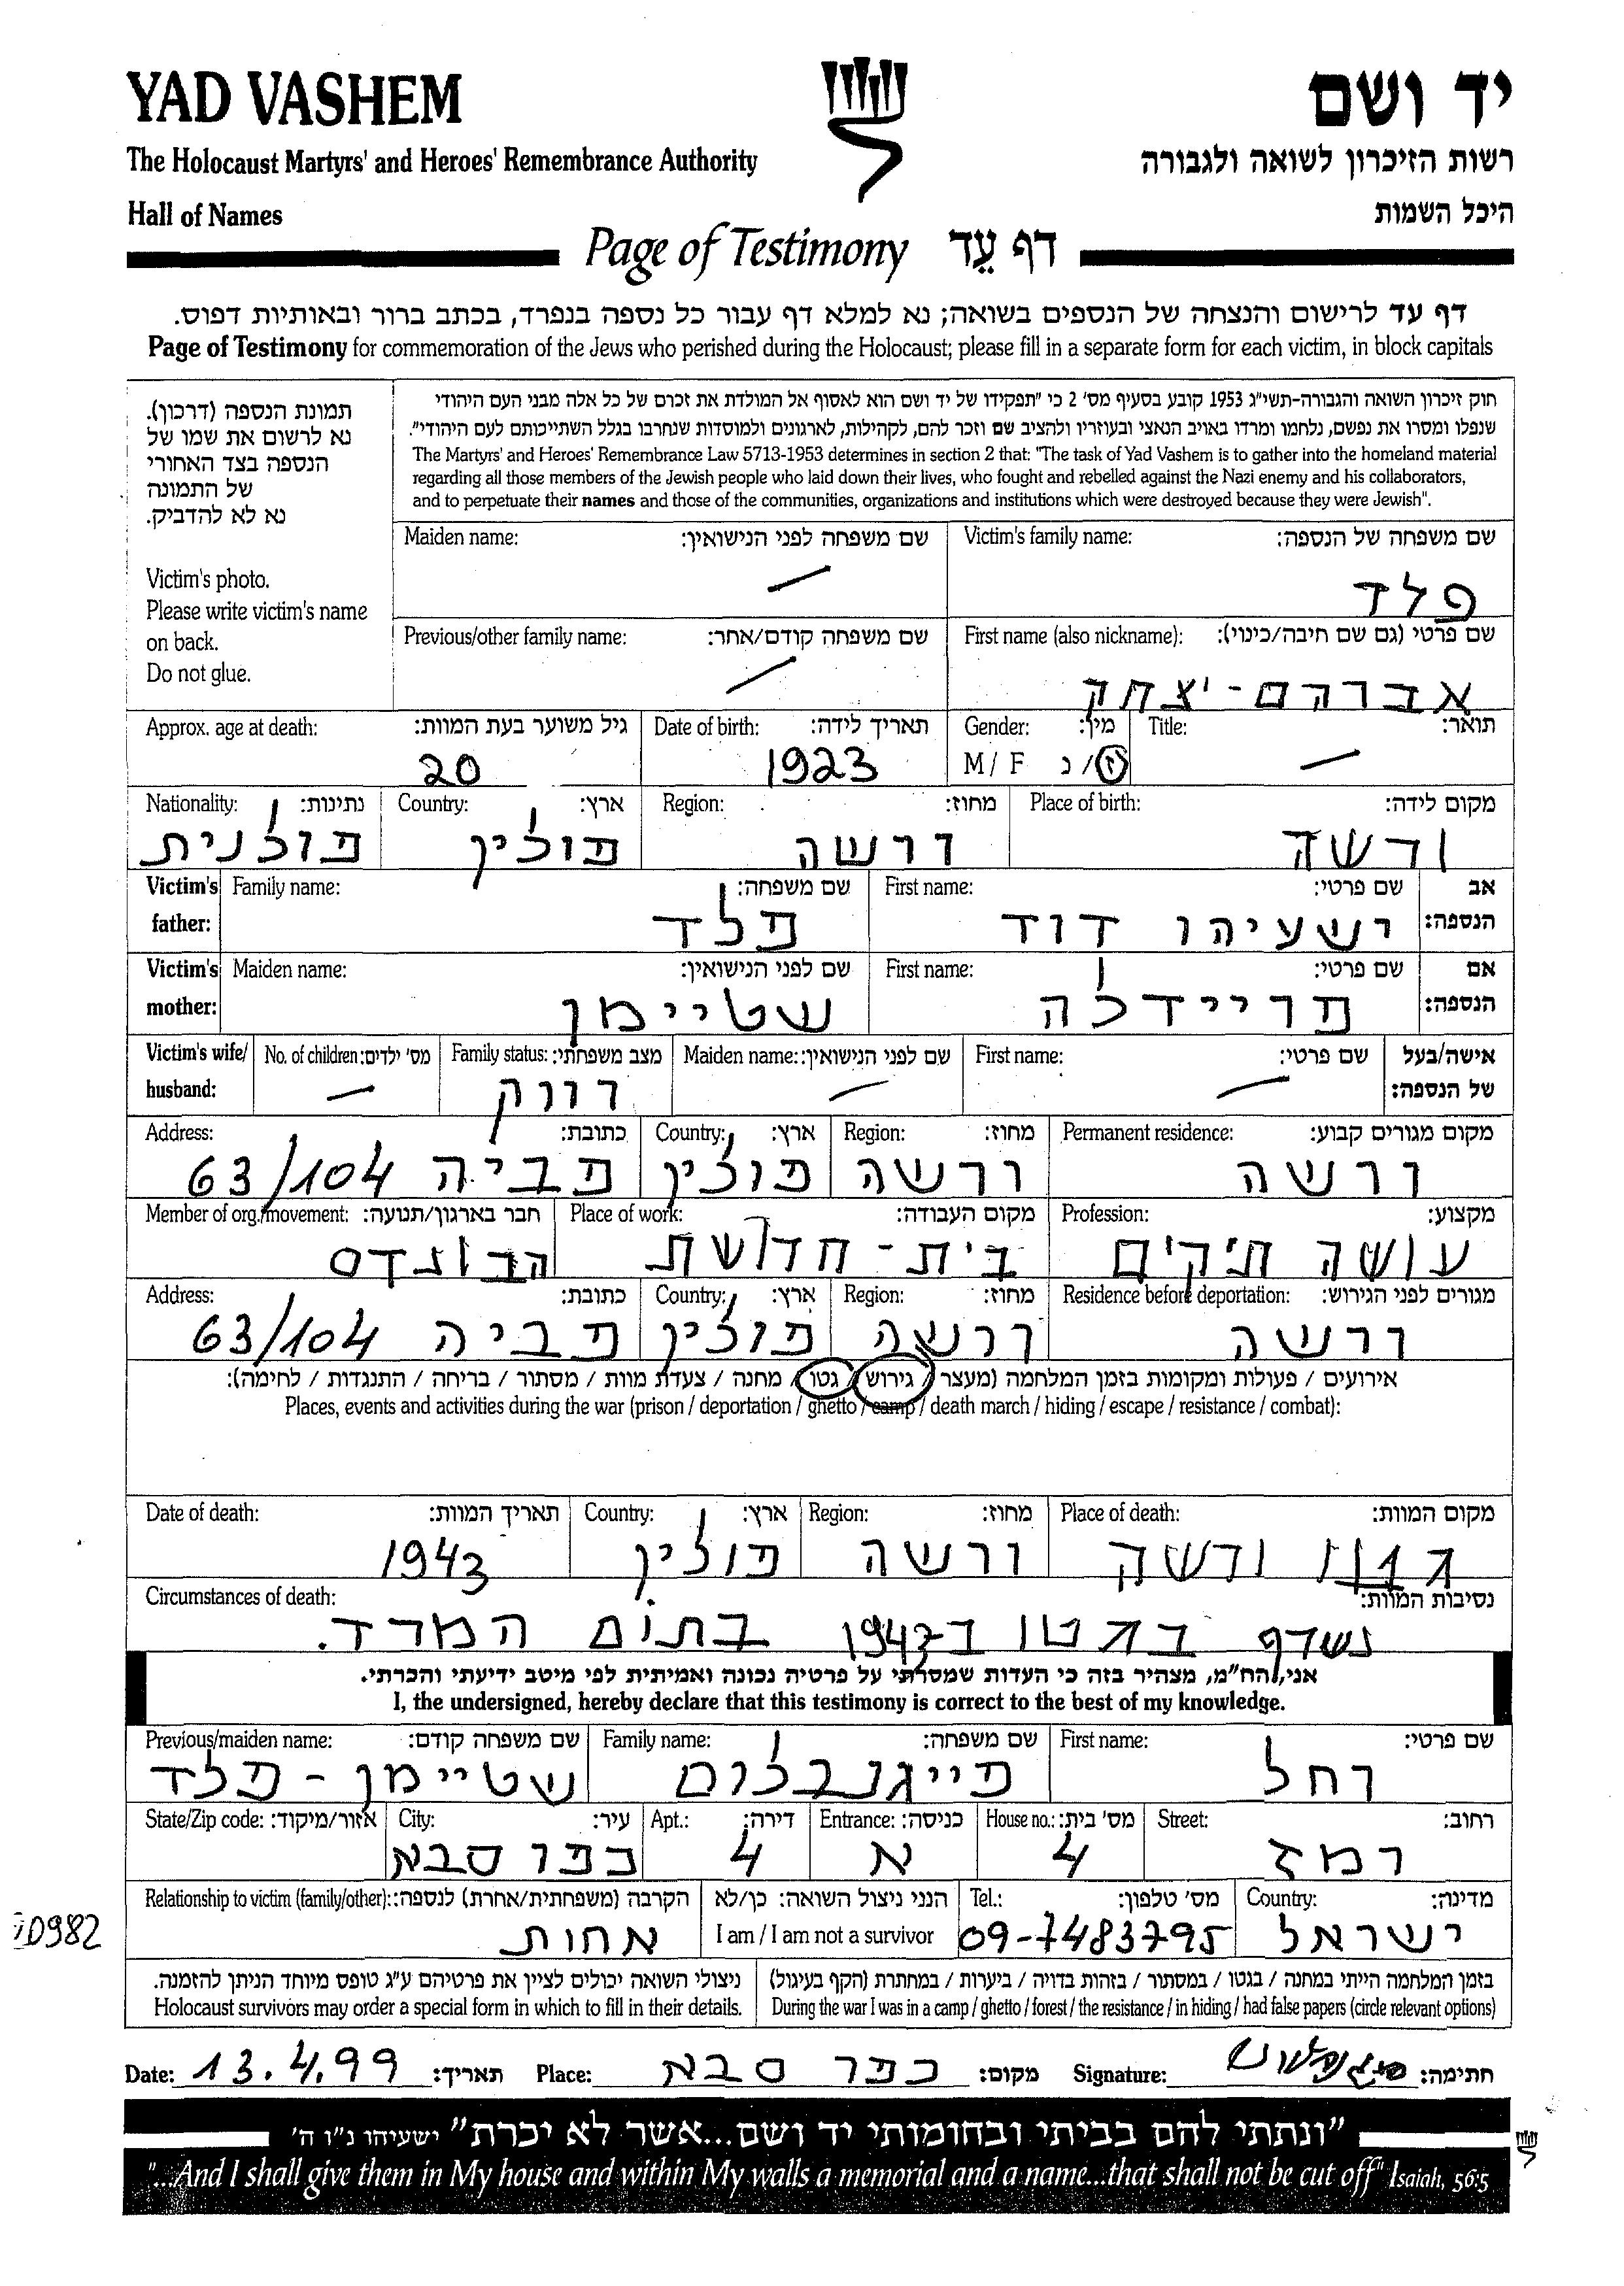 YAD VASHEM
יד ושם
The Holocaust Martyrs' and Heroes' Remembrance Authority
רשות הזיכרון לשואה ולגבורה
Hall of Names
היכל השמות
Page of Testimony דף עֵד
דף עד לרישום והנצחה של הנספים בשואה; נא למלא דף עבור כל נספה בנפרד, בכתב ברור ובאותיות דפוס.
Page of Testimony for commemoration of the Jews who perished during the Holocaust; please fill in a separate form for each victim, in block capitals
תמונת הנספה (דרכון).
נא לרשום את שמו של
הנספה בצד האחורי
של התמונה
נא לא להדביק.
Victim's photo.
Please write victim's name
on back.
Do not glue.
חוק זיכרון השואה והגבורה-תשי"ג 1953 קובע בסעיף מס' 2 כי "תפקידו של יד ושם הוא לאסוף אל המולדת את זכרם של כל אלה מבני העם היהודי
שנפלו ומסרו את נפשם, נלחמו ומרדו באויב הנאצי ובעוזריו ולהציב שם וזכר להם, לקהילות, לארגונים ולמוסדות שנחרבו בגלל השתייכותם לעם היהודי".
The Martyrs' and Heroes' Remembrance Law 5713-1953 determines in section 2 that: "The task of Yad Vashem is to gather into the homeland material
regarding all those members of the Jewish people who laid down their lives, who fought and rebelled against the Nazi enemy and his collaborators,
and to perpetuate their names and those of the communities, organizations and institutions which were destroyed because they were Jewish".
Victim's family name: שם משפחה של הנספה:
פלד
Maiden name: שם משפחה לפני הנישואין:
—
First name (also nickname): שם פרטי (גם שם חיבה/כינוי):
אברהם-יצחק
Previous/other family name: שם משפחה קודם/אחר:
—
Title: תואר:
—
Gender: מין:
M / F ז / נ
Date of birth: תאריך לידה:
1923
Approx. age at death: גיל משוער בעת המוות:
20
Place of birth: מקום לידה:
ורשה
Region: מחוז:
ורשה
Country: ארץ:
פולין
Nationality: נתינות:
פולנית
Victim's father: אב הנספה:
First name: שם פרטי:
ישעיהו דוד
Family name: שם משפחה:
פלד
Victim's mother: אם הנספה:
First name: שם פרטי:
פריידלה
Maiden name: שם לפני הנישואין:
שטיימן
Victim's wife/ husband: אישה/בעל של הנספה:
First name: שם פרטי:
—
Maiden name: שם לפני הנישואין:
—
Family status: מצב משפחתי:
רווק
No. of children: מס' ילדים:
—
Permanent residence: מקום מגורים קבוע:
ורשה
Region: מחוז:
ורשה
Country: ארץ:
פולין
Address: כתובת:
פביה 63/104
Profession: מקצוע:
עושה תיקים
Place of work: מקום העבודה:
בית-חרושת
Member of org./movement: חבר בארגון/תנועה:
הבונדס
Residence before deportation: מגורים לפני הגירוש:
ורשה
Region: מחוז:
ורשה
Country: ארץ:
פולין
Address: כתובת:
פביה 63/104
אירועים / פעולות ומקומות בזמן המלחמה (מעצר / גירוש / גטו / מחנה / צעדת מוות / מסתור / בריחה / התנגדות / לחימה):
Places, events and activities during the war (prison / deportation / ghetto / camp / death march / hiding / escape / resistance / combat):
Place of death: מקום המוות:
גטו ורשה
Region: מחוז:
ורשה
Country: ארץ:
פולין
Date of death: תאריך המוות:
1943
Circumstances of death: נסיבות המוות:
נשרף בגטו ב-1943 בתום המרד.
אני, הח"מ, מצהיר בזה כי העדות שמסרתי על פרטיה נכונה ואמיתית לפי מיטב ידיעתי והכרתי.
I, the undersigned, hereby declare that this testimony is correct to the best of my knowledge.
First name: שם פרטי:
רחל
Family name: שם משפחה:
פייגנבלום
Previous/maiden name: שם משפחה קודם:
שטיימן - פלד
Street: רחוב:
רמז
House no.: מס' בית:
4
Entrance: כניסה:
א
Apt.: דירה:
4
City: עיר:
כפר סבא
State/Zip code: אזור/מיקוד:
Country: מדינה:
ישראל
Tel.: מס' טלפון:
09-7483795
הנני ניצול השואה: כן/לא
I am / I am not a survivor
Relationship to victim (family/other): הקרבה (משפחתית/אחרת) לנספה:
אחות
בזמן המלחמה הייתי במחנה / בגטו / במסתור / בזהות בדויה / ביערות / במחתרת (הקף בעיגול)
During the war I was in a camp / ghetto / forest / the resistance / in hiding / had false papers (circle relevant options)
ניצולי השואה יכולים לציין את פרטיהם ע"ג טופס מיוחד הניתן להזמנה.
Holocaust survivors may order a special form in which to fill in their details.
Date: 13.4.99 תאריך: Place: כפר סבא מקום: Signature: חתימה:
"ונתתי להם בביתי ובחומותי יד ושם...אשר לא יכרת" ישעיהו נ"ו ה'
"...And I shall give them in My house and within My walls a memorial and a name...that shall not be cut off" Isaiah, 56:5